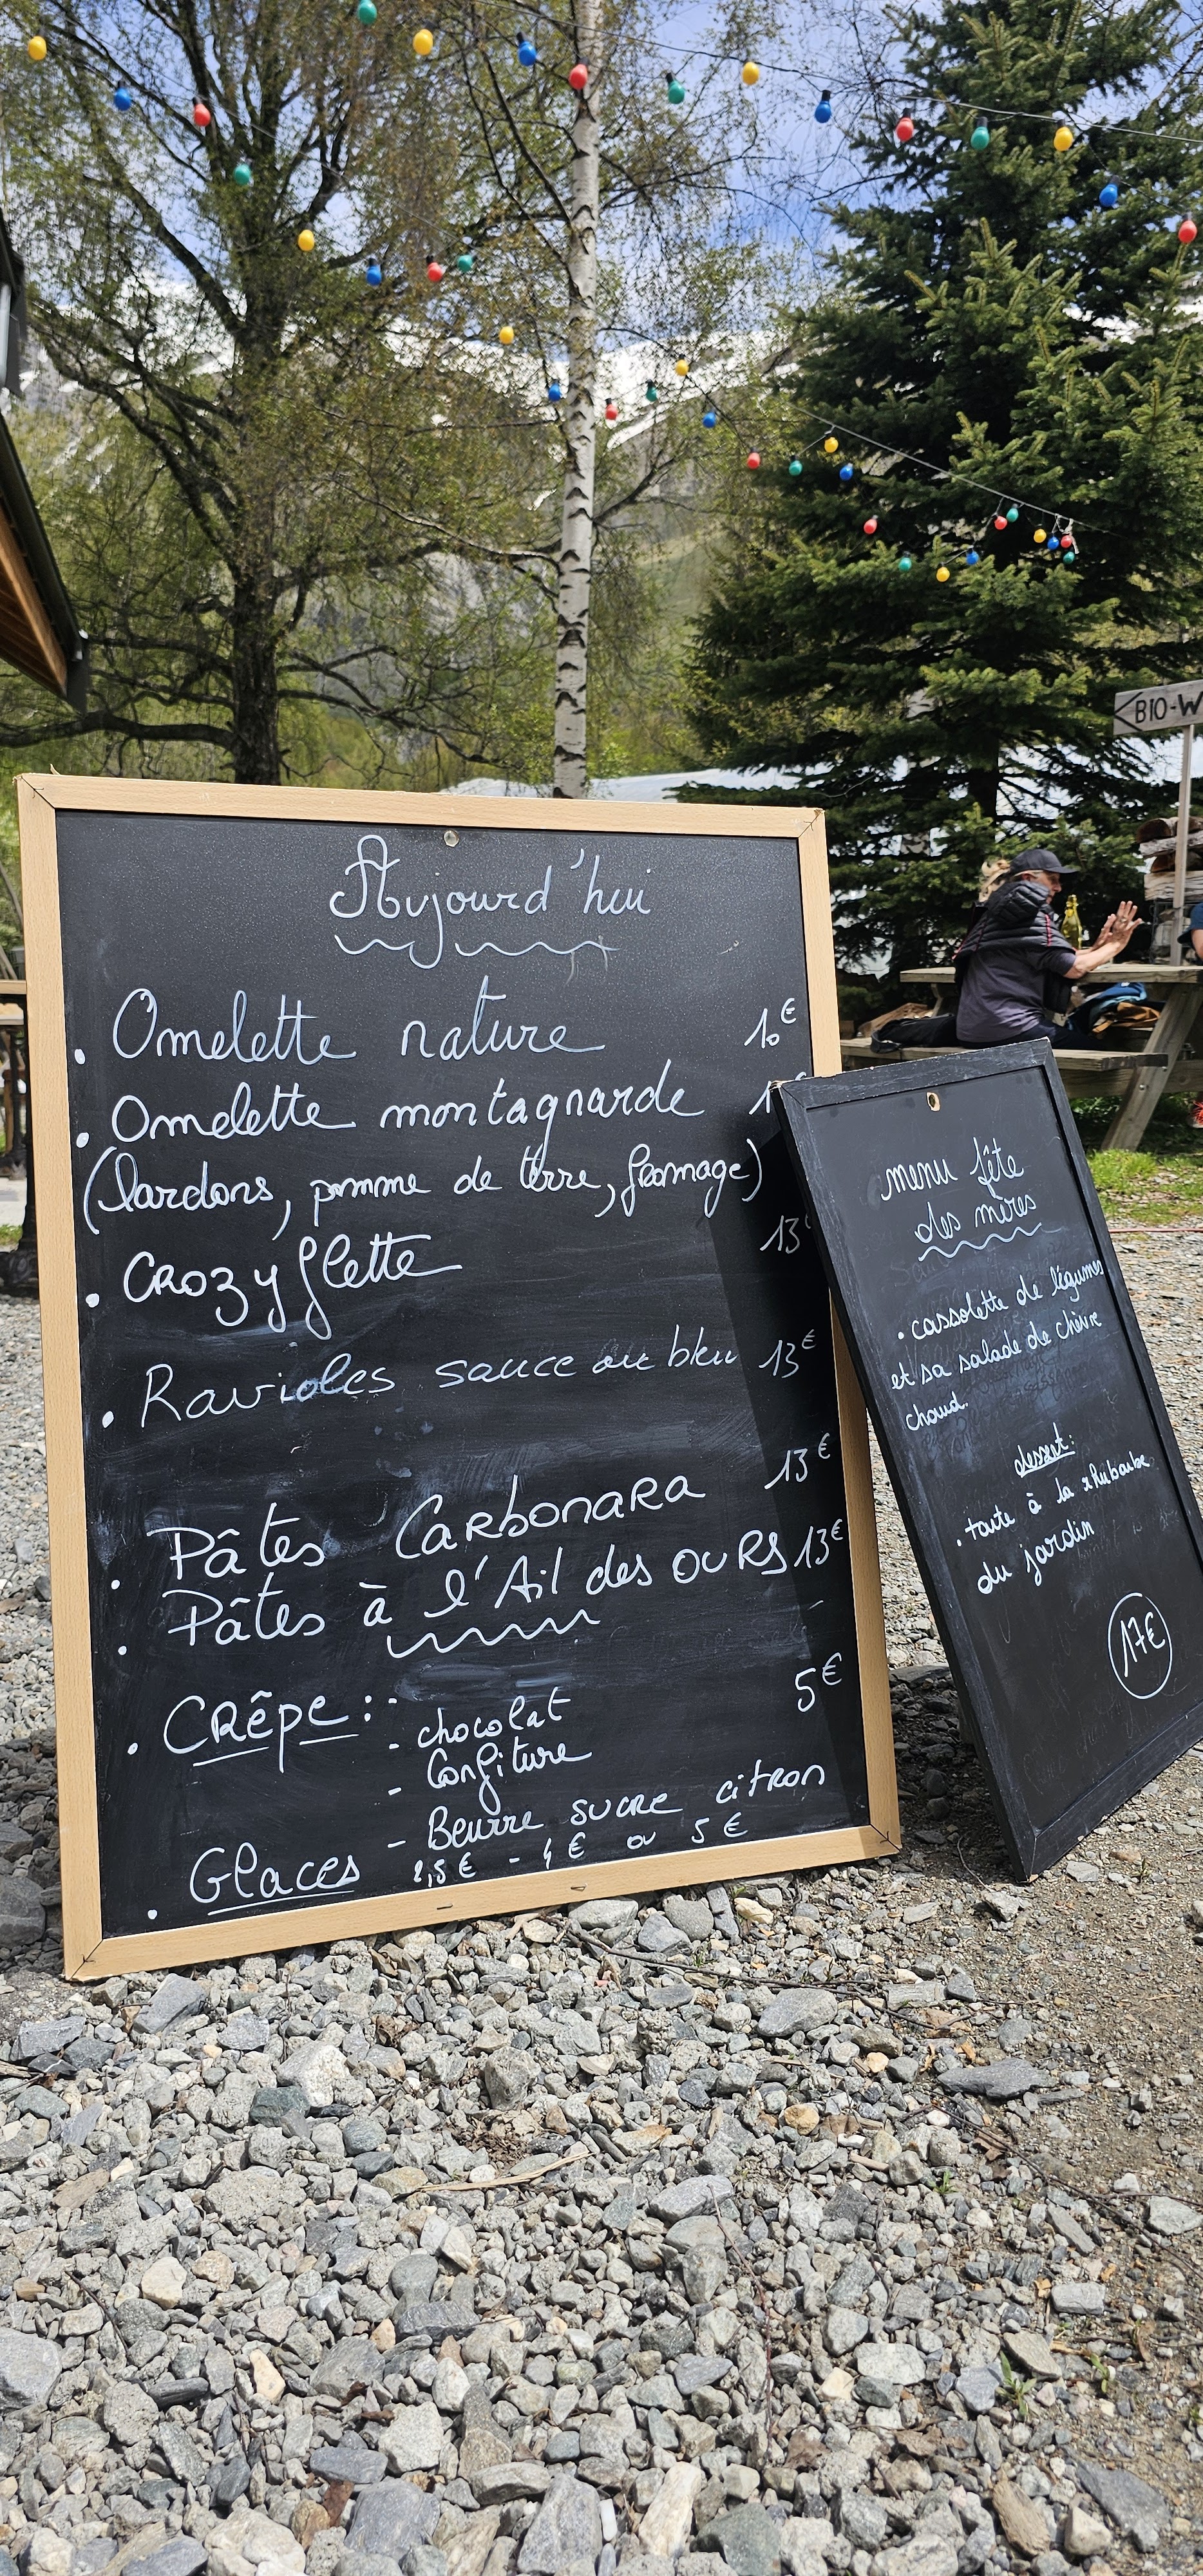 Aujourd'hui
. Omelette nature 10€
. Omelette montagnarde
(lardons, pomme de terre, fromage)
. CROZyflette 13
. Ravioles sauce au bleu 13€
. Pâtes CaRbonaRa 13€
. Pâtes à l'Ail des OURS 13€
. CRêpe : - chocolat 5€
- Confiture
- Beurre sucre citron
. Glaces 2,5€ - 4€ ou 5€
menu fête
des mères
. cassolette de légumes
et sa salade de chèvre
chaud.
dessert :
. tarte à la rhubarbe
du jardin
17€
BIO-W